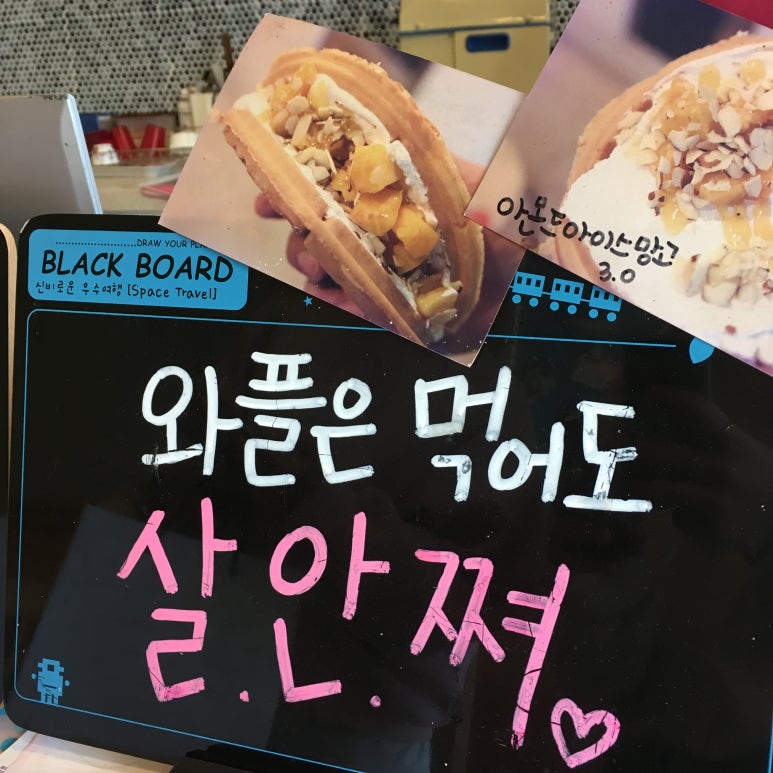 DRAW YOUR
BLACK BOARD
신비로운 우수여행 [Space Travel]
아몬드아이스망고
3.0
와플은 먹어도
살.안.쪄